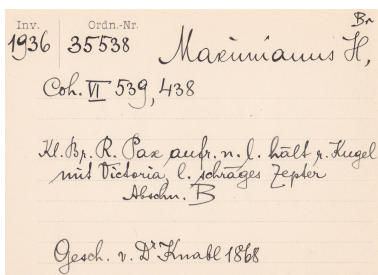 Inv. Ordn.-Nr. Br
1936 35538 Maximianus H,
Coh. VI 539, 438
Kl. Br. R. Pax aufr. n. l. hält r. Kugel
mit Victoria, l. schräges Zepter
Abschn. B
Gesch. v. Dr Knabl 1868